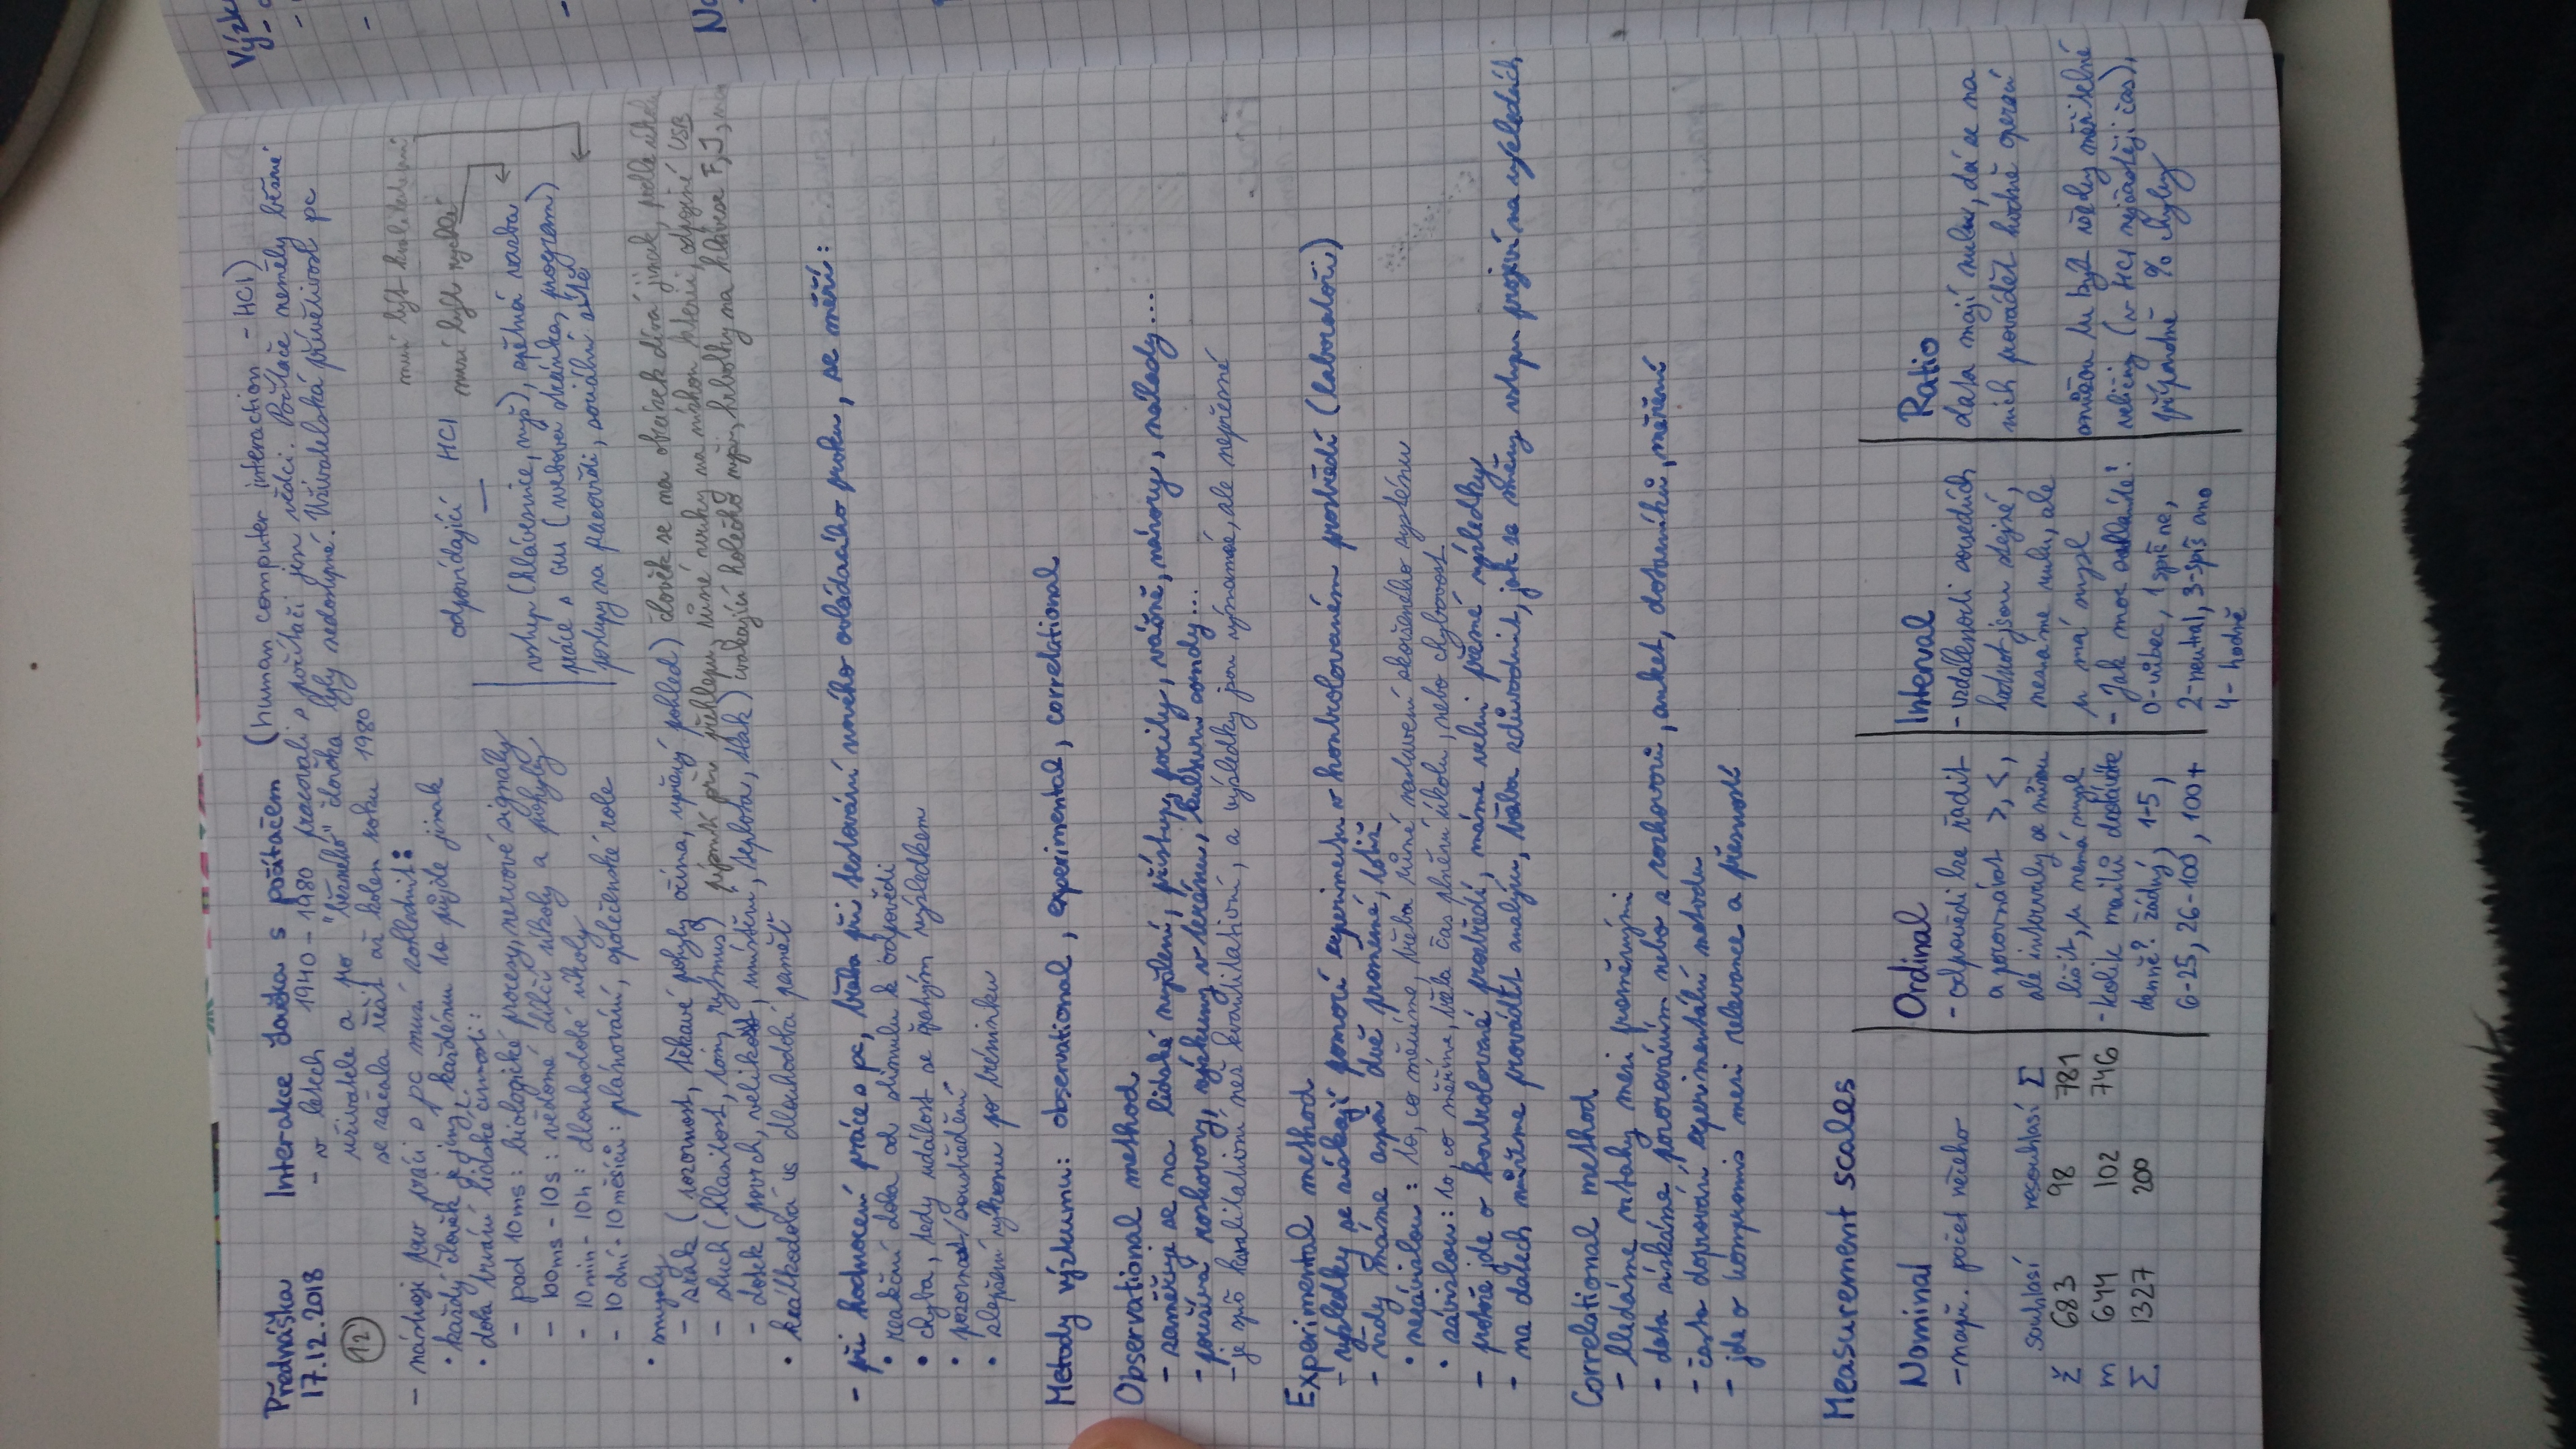 Přednáška Interakce člověka s počítačem (human computer interaction - HCI)
17.12.2018 - v letech 1940 - 1980 pracovali s počítači jen vědci. Počítače neměly běžné
12 uživatele a pro "běžného" člověka byly nedostupné. Uživatelská přívětivost pc
se začala řešit až kolem roku 1980
- nástroje pro práci s pc musí zohlednit:
• každý člověk je jiný, každému to půjde jinak
• doba trvání lidské činnosti:
- pod 10ms: biologické procesy, nervové signály
- 100ms - 10s: vědomé dílčí úkoly a pohyby
- 10min - 10h: dlouhodobé úkoly
- 10 dní - 10 měsíců: plánování, společenské role
musí být kvalitativní
odpovídající HCI musí být rychlé
—
vstup (klávesnice, myš), zpětná vazba
práce s GUI (webová stránka, program)
postupy na pracovišti, sociální sítě
• smysly
- zrak (pozornost, těkavé pohyby očima, upřený pohled) člověk se na obrázek dívá jinak, podle úkolu
- sluch (hlasitost, tóny, rytmus) pípnutí při překlepu, různé zvuky na nízkou baterii, odpojené USB
- dotek (povrch, velikost, umístění, teplota, tlak) cvakající kolečko myši, hrbolky na klávese F, J,
• krátkodobá vs dlouhodobá paměť
- při hodnocení práce s pc, třeba při testování nového ovládacího prvku, se měří:
• reakční doba od stimulu k odpovědi
• chyba, tedy událost se špatným výsledkem
• pozornost/soustředění
• zlepšení výkonu po tréninku
Metody výzkumu: observational, experimental, correlational
Observational method
- zaměřuje se na lidské myšlení, přístup, pocity, vášně, názory, nálady...
- používá rozhovory, výzkumy v terénu, kulturní sondy...
- je spíš kvalitativní než kvantitativní, a výsledky jsou významné, ale nepřesné
Experimental method
- výsledky se získají pomocí experimentu v kontrolovaném prostředí (laboratoři)
- vždy máme aspoň dvě proměnné, totiž
• nezávislou: to, co měníme, třeba různé nastavení zkoušeného systému
• závislou: to, co měříme, třeba čas plnění úkolu, nebo chybovost
- protože jde o kontrolované prostředí, máme velmi přesné výsledky
- na datech můžeme provádět analýzu, třeba zdůvodnit, jak se změny vstupu projeví na výsledcích
Correlational method
- hledáme vztahy mezi proměnnými
- data získáme pozorováním nebo z rozhovorů, anket, dotazníků, měření
- často doprovází experimentální metodu
- jde o kompromis mezi relevance a přesností
Measurement scales
Nominal
- např. počet něčeho
souhlasí nesouhlasí Σ
ž 683 98 781
m 644 102 746
Σ 1327 200
Ordinal
- odpovědi lze řadit
a porovnávat >, <,
ale intervaly se můžou
lišit, μ nemá smysl
- kolik mailů dostáváte
denně? žádný, 1-5,
6-25, 26-100, 100+
Interval
- vzdálenosti sousedních
hodnot jsou stejné,
neznáme nulu, ale
μ má smysl
- Jak moc souhlasíte?
0-vůbec, 1 spíš ne,
2-neutral, 3-spíš ano
4- hodně
Ratio
data mají nulu, dá se na
nich provádět hodně operací
můžou tu být všechny měřitelné
veličiny (v HCI nejčastěji čas),
případně % chyby